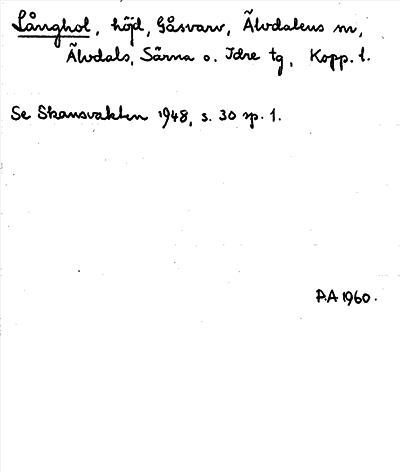 Långhol, höjd, Gåsvarv, Älvdalens sn,
Älvdals, Särna o. Idre tg, Kopp. l.
Se Skansvakten 1948, s. 30 sp. 1.
P.A 1960.